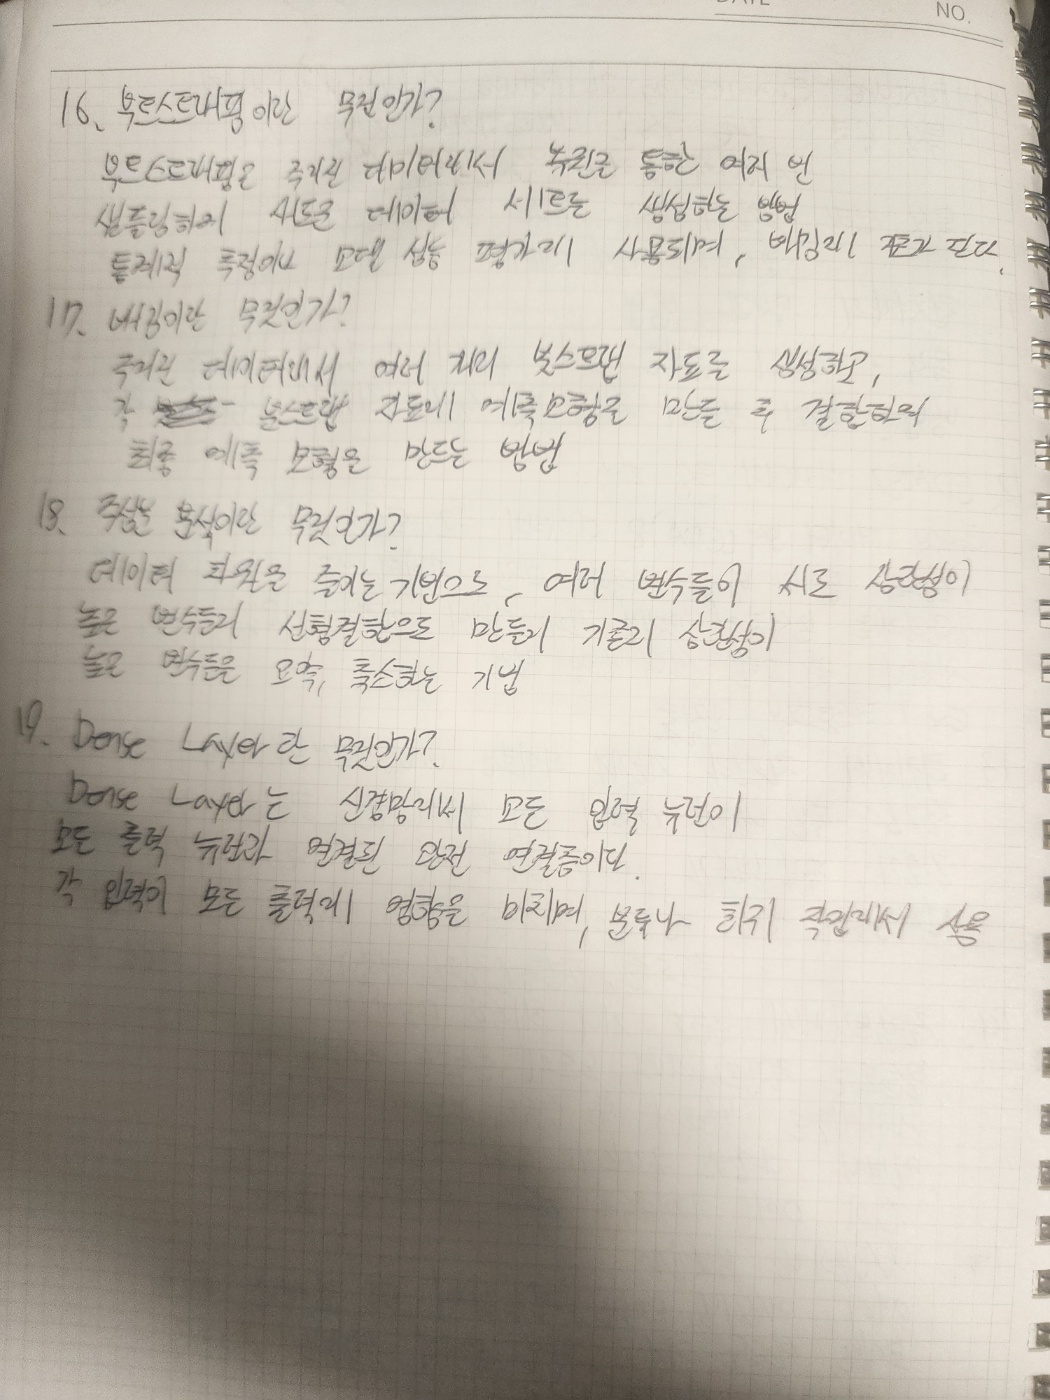 DATE NO.
16. 부트스트래핑이란 무엇인가?
부트스트래핑은 주어진 데이터에서 복원을 통한 여러 번
샘플링하여 새로운 데이터 세트를 생성하는 방법
통계적 추정이나 모델 성능 평가에 사용되며, 배깅의 된다.
17. 배깅이란 무엇인가?
주어진 데이터에서 여러 개의 붓스트랩 자료를 생성하고,
각 붓스트랩 자료에 예측모형을 만든 후 결합하여
최종 예측 모형을 만드는 방법
18. 주성분 분석이란 무엇인가?
데이터 차원을 줄이는 기법으로, 여러 변수들이 서로 상관성이
높은 변수들의 선형결합으로 만들어 기존의 상관성이
높은 변수들을 요약, 축소하는 기법
19. Dense Layer란 무엇인가?
Dense Layer는 신경망에서 모든 입력 뉴런이
모든 출력 뉴런과 연결된 완전 연결층이다.
각 입력이 모든 출력에 영향을 미치며, 분류나 회귀 작업에서 사용